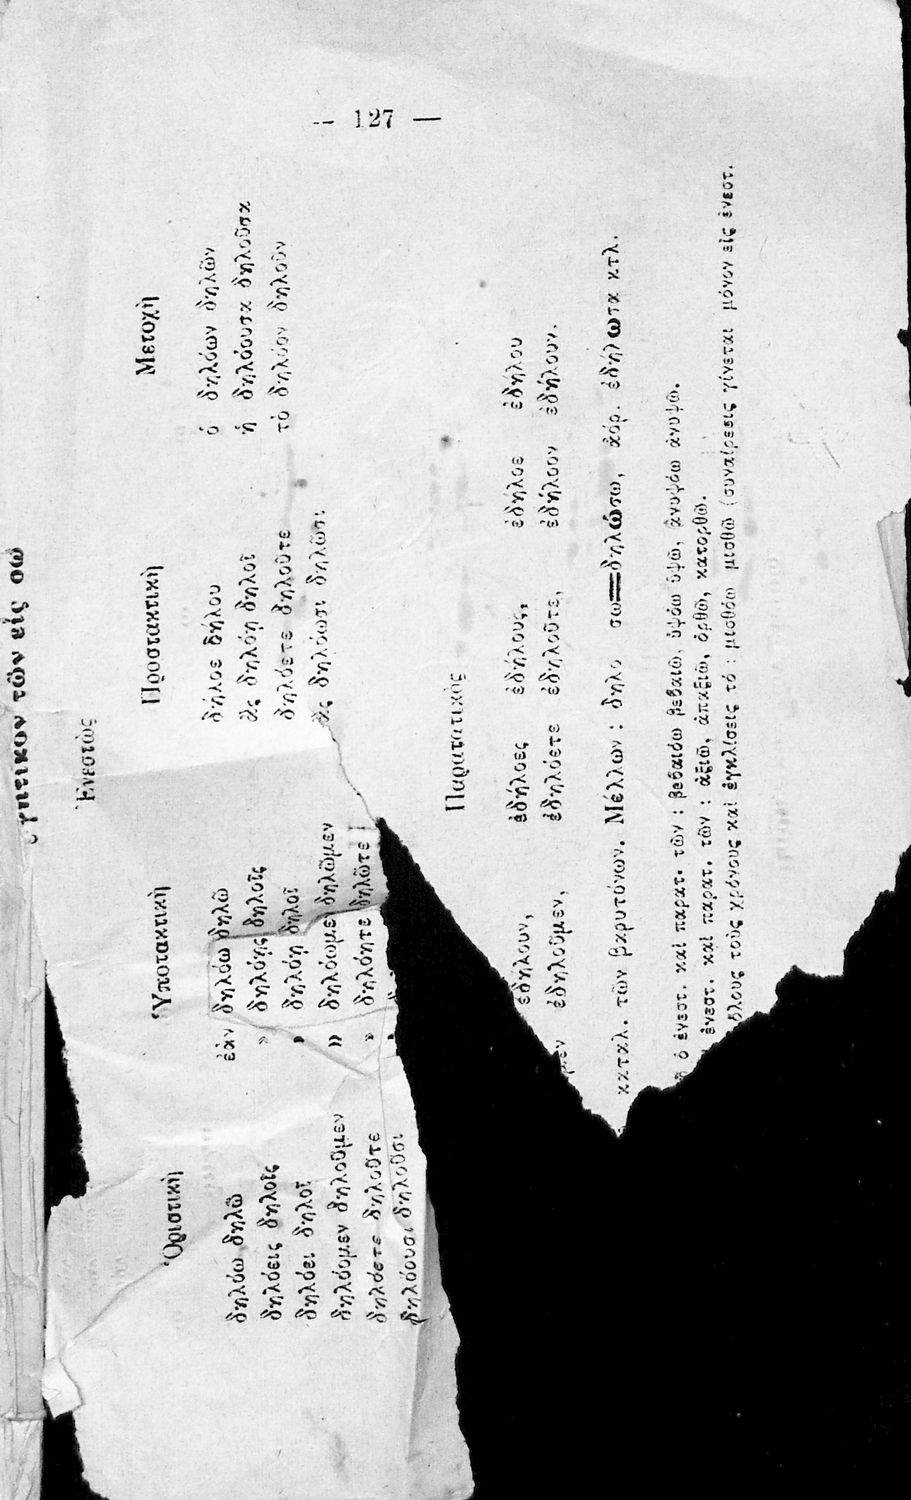 — 127 —
τῶν εἰς οω
Ἐνεστὼς
Ὁριστικὴ Ὑποτακτικὴ Προστακτικὴ Μετοχὴ
δηλόω δηλῶ ἐὰν δηλόω δηλῶ δήλοε δήλου ὁ δηλόων δηλῶν
δηλόεις δηλοῖς » δηλόῃς δηλοῖς ἂς δηλόῃ δηλοῖ ἡ δηλόουσα δηλοῦσα
δηλόει δηλοῖ » δηλόῃ δηλοῖ δηλόετε δηλοῦτε τὸ δηλόον δηλοῦν
δηλόομεν δηλοῦμεν » δηλόωμεν δηλῶμεν ἂς δηλόωσι δηλῶσι
δηλόετε δηλοῦτε » δηλόητε δηλῶτε
δηλόουσι δηλοῦσι
Παρατατικὸς
ἐδήλουν, ἐδήλοες ἐδήλους, ἐδήλοε ἐδήλου
ἐδηλοῦμεν, ἐδηλόετε ἐδηλοῦτε, ἐδήλοον ἐδήλουν.
καταλ. τῶν βαρυτόνων. Μέλλων : δηλο σω=δηλώσω, ἀόρ. ἐδήλωσα κτλ.
ὁ ἐνεστ. καὶ παρατ. τῶν : βεβαιόω βεβαιῶ, ὑψόω ὑψῶ, ἀνυψόω ἀνυψῶ.
ἐνεστ. καὶ παρατ. τῶν : ἀξιῶ, ἀπαξιῶ, ὀρθῶ, κατορθῶ.
ὅλους τοὺς χρόνους καὶ ἐγκλίσεις τό : μισθόω μισθῶ (συναίρεσις γίνεται μόνον εἰς ἐνεστ.